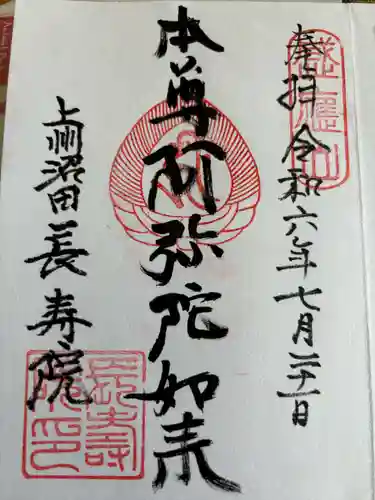 奉拝 令和六年七月二十一日
感應山
本尊阿弥陀如来
上州沼田 長寿院
長壽院印